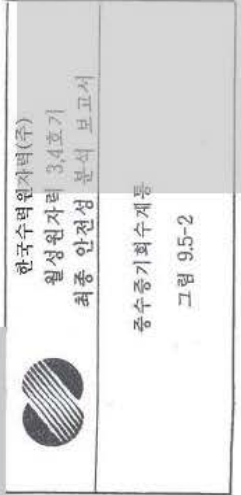 한국수력원자력(주)
월성원자력 3,4호기
최종 안전성 분석 보고서
중수증기회수계통
그림 9.5-2